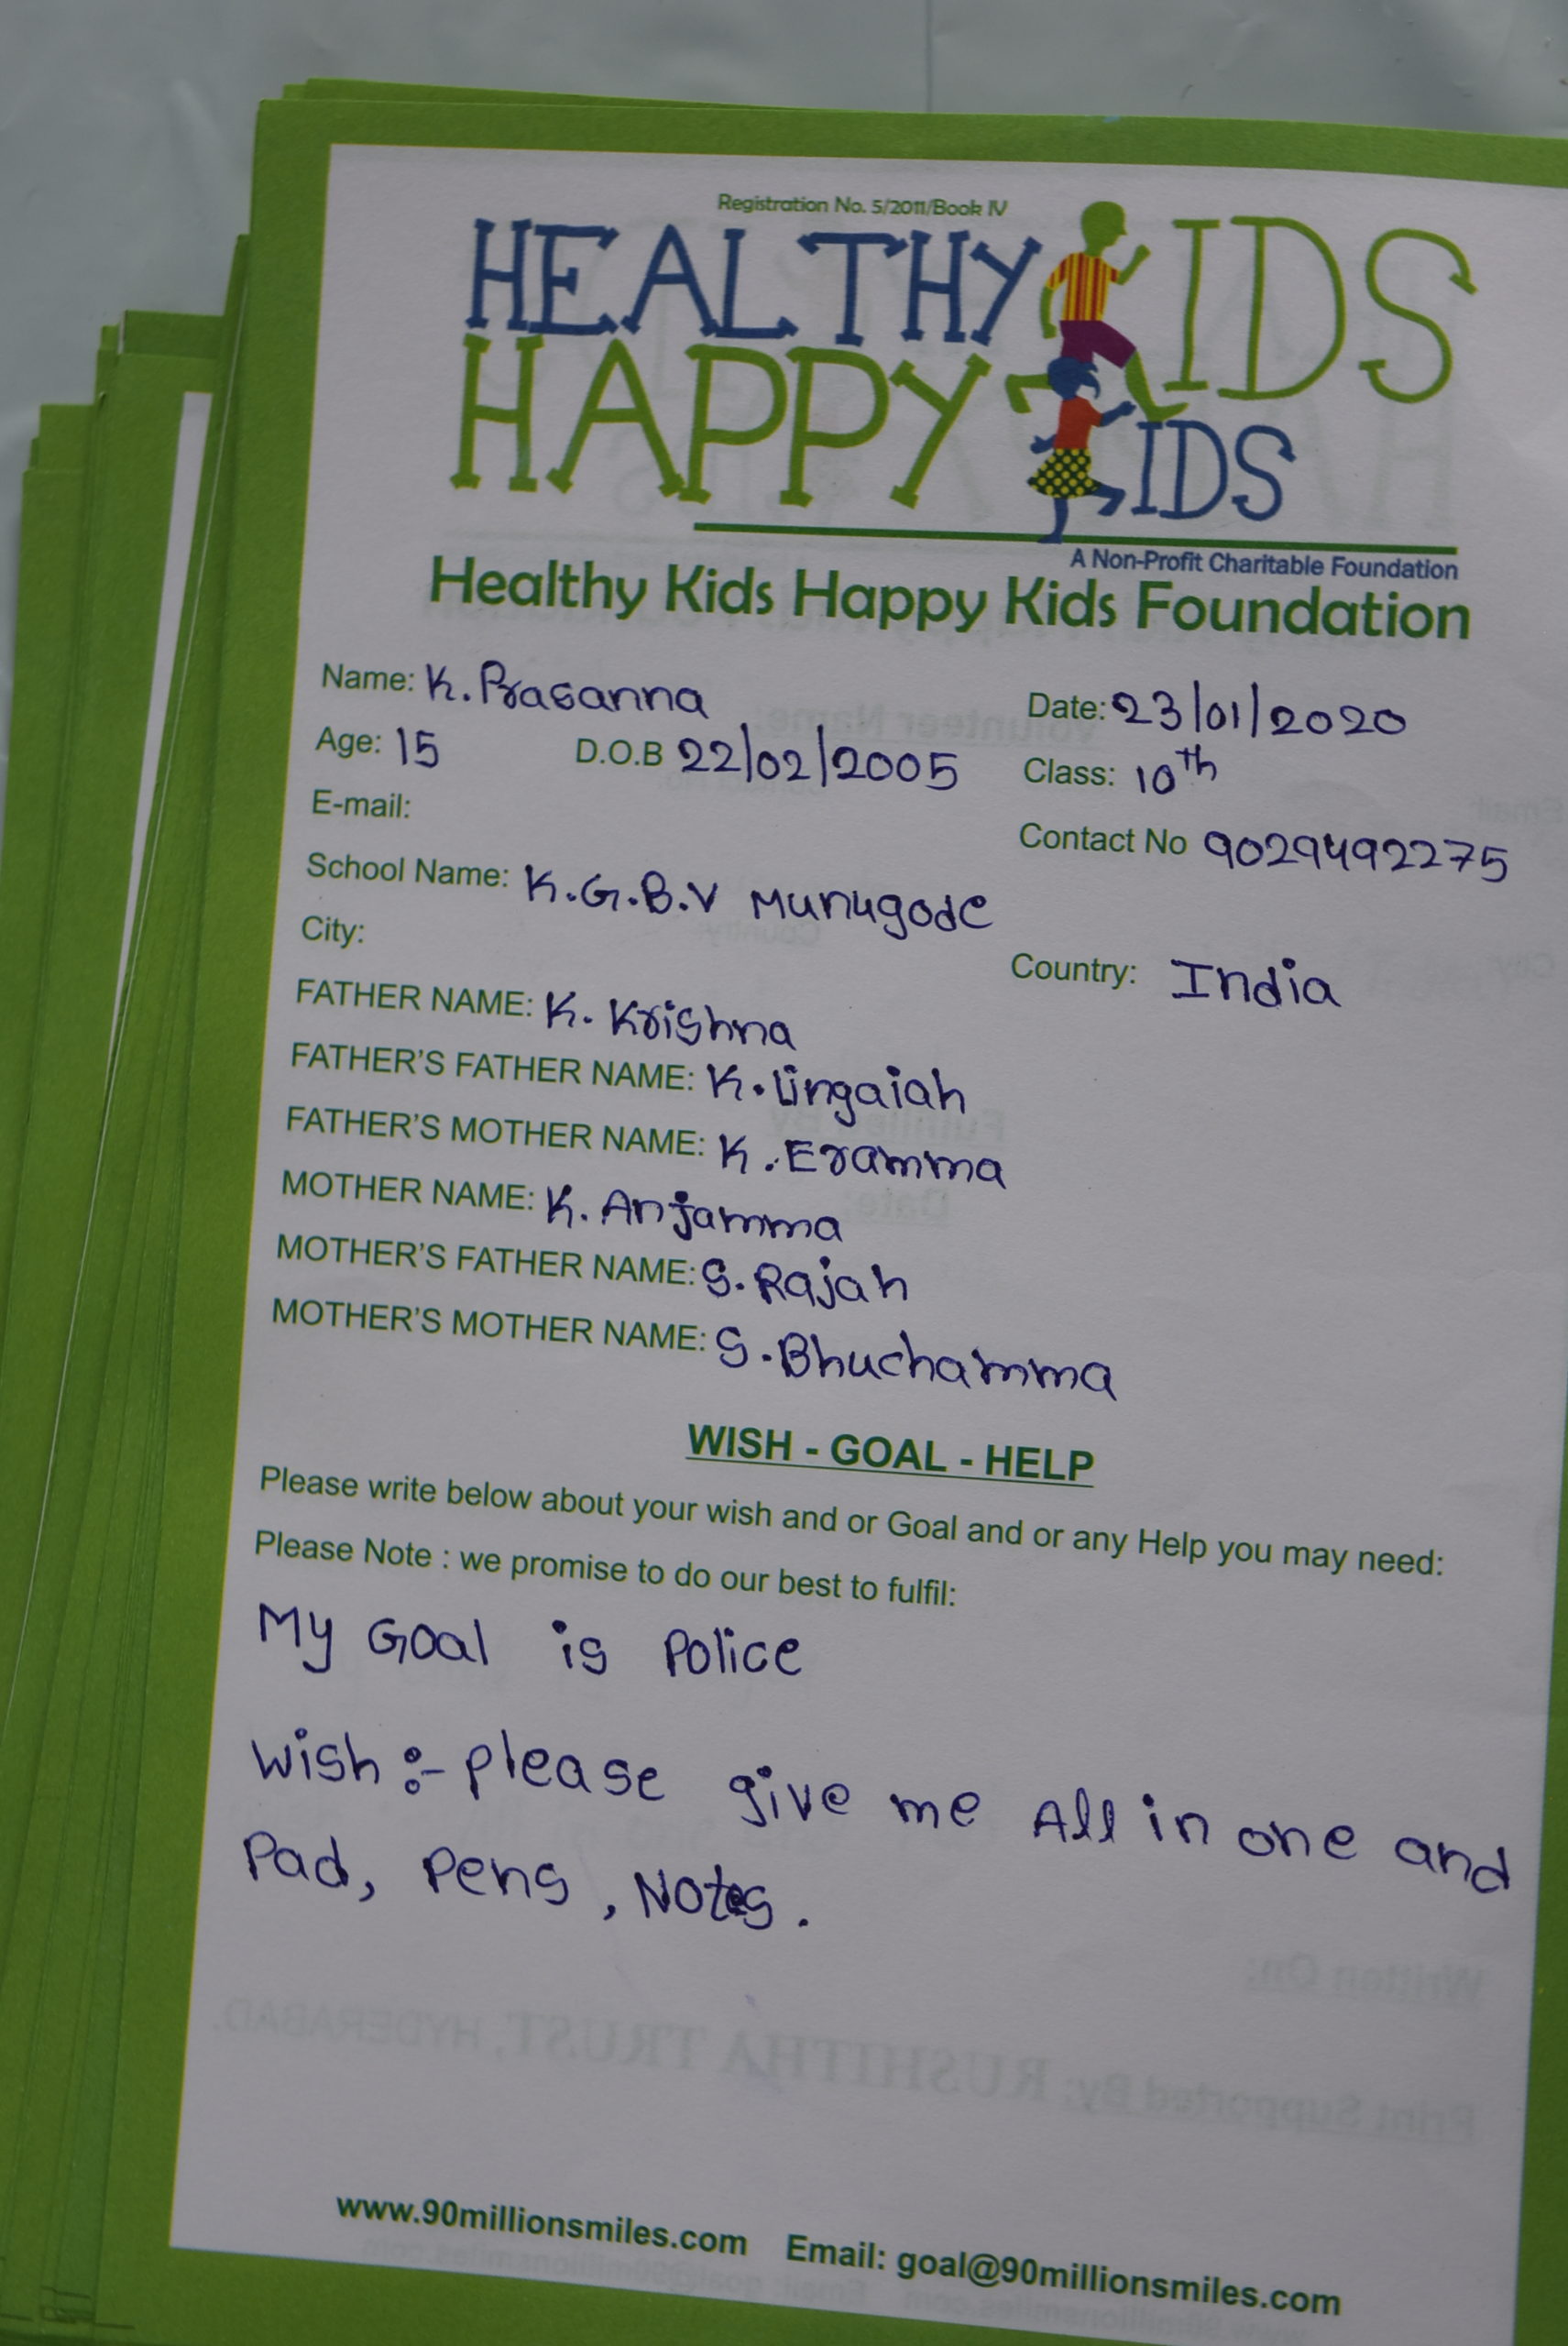 Registration No. 5/2011/Book IV
HEALTHY KIDS
HAPPY KIDS
A Non-Profit Charitable Foundation
Healthy Kids Happy Kids Foundation
Name: K. Prasanna Date: 23/01/2020
Age: 15 D.O.B 22/02/2005 Class: 10th
E-mail: Contact No 9029492275
School Name: K.G.B.V Munugode
City: Country: India
FATHER NAME: K. Krishna
FATHER'S FATHER NAME: K. lingaiah
FATHER'S MOTHER NAME: K. Eramma
MOTHER NAME: K. Anjamma
MOTHER'S FATHER NAME: S. Rajah
MOTHER'S MOTHER NAME: S. Bhuchamma
WISH - GOAL - HELP
Please write below about your wish and or Goal and or any Help you may need:
Please Note : we promise to do our best to fulfil:
My Goal is Police
Wish :- please give me All in one and
Pad, Pens, Notes.
Written On:
Print Supported By: RUSHITHA TRUST, HYDERABAD.
www.90millionsmiles.com Email: goal@90millionsmiles.com